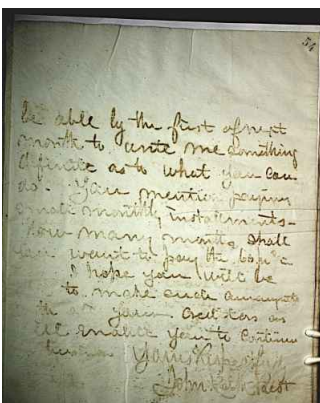 54
be able by the first of next
month to write me something
definite as to what you can
do. You mention paying
small monthly installments-
How many months shall
you want to pay the
I hope you will be
to make such
your creditors as
enable you to continue
Yours
John